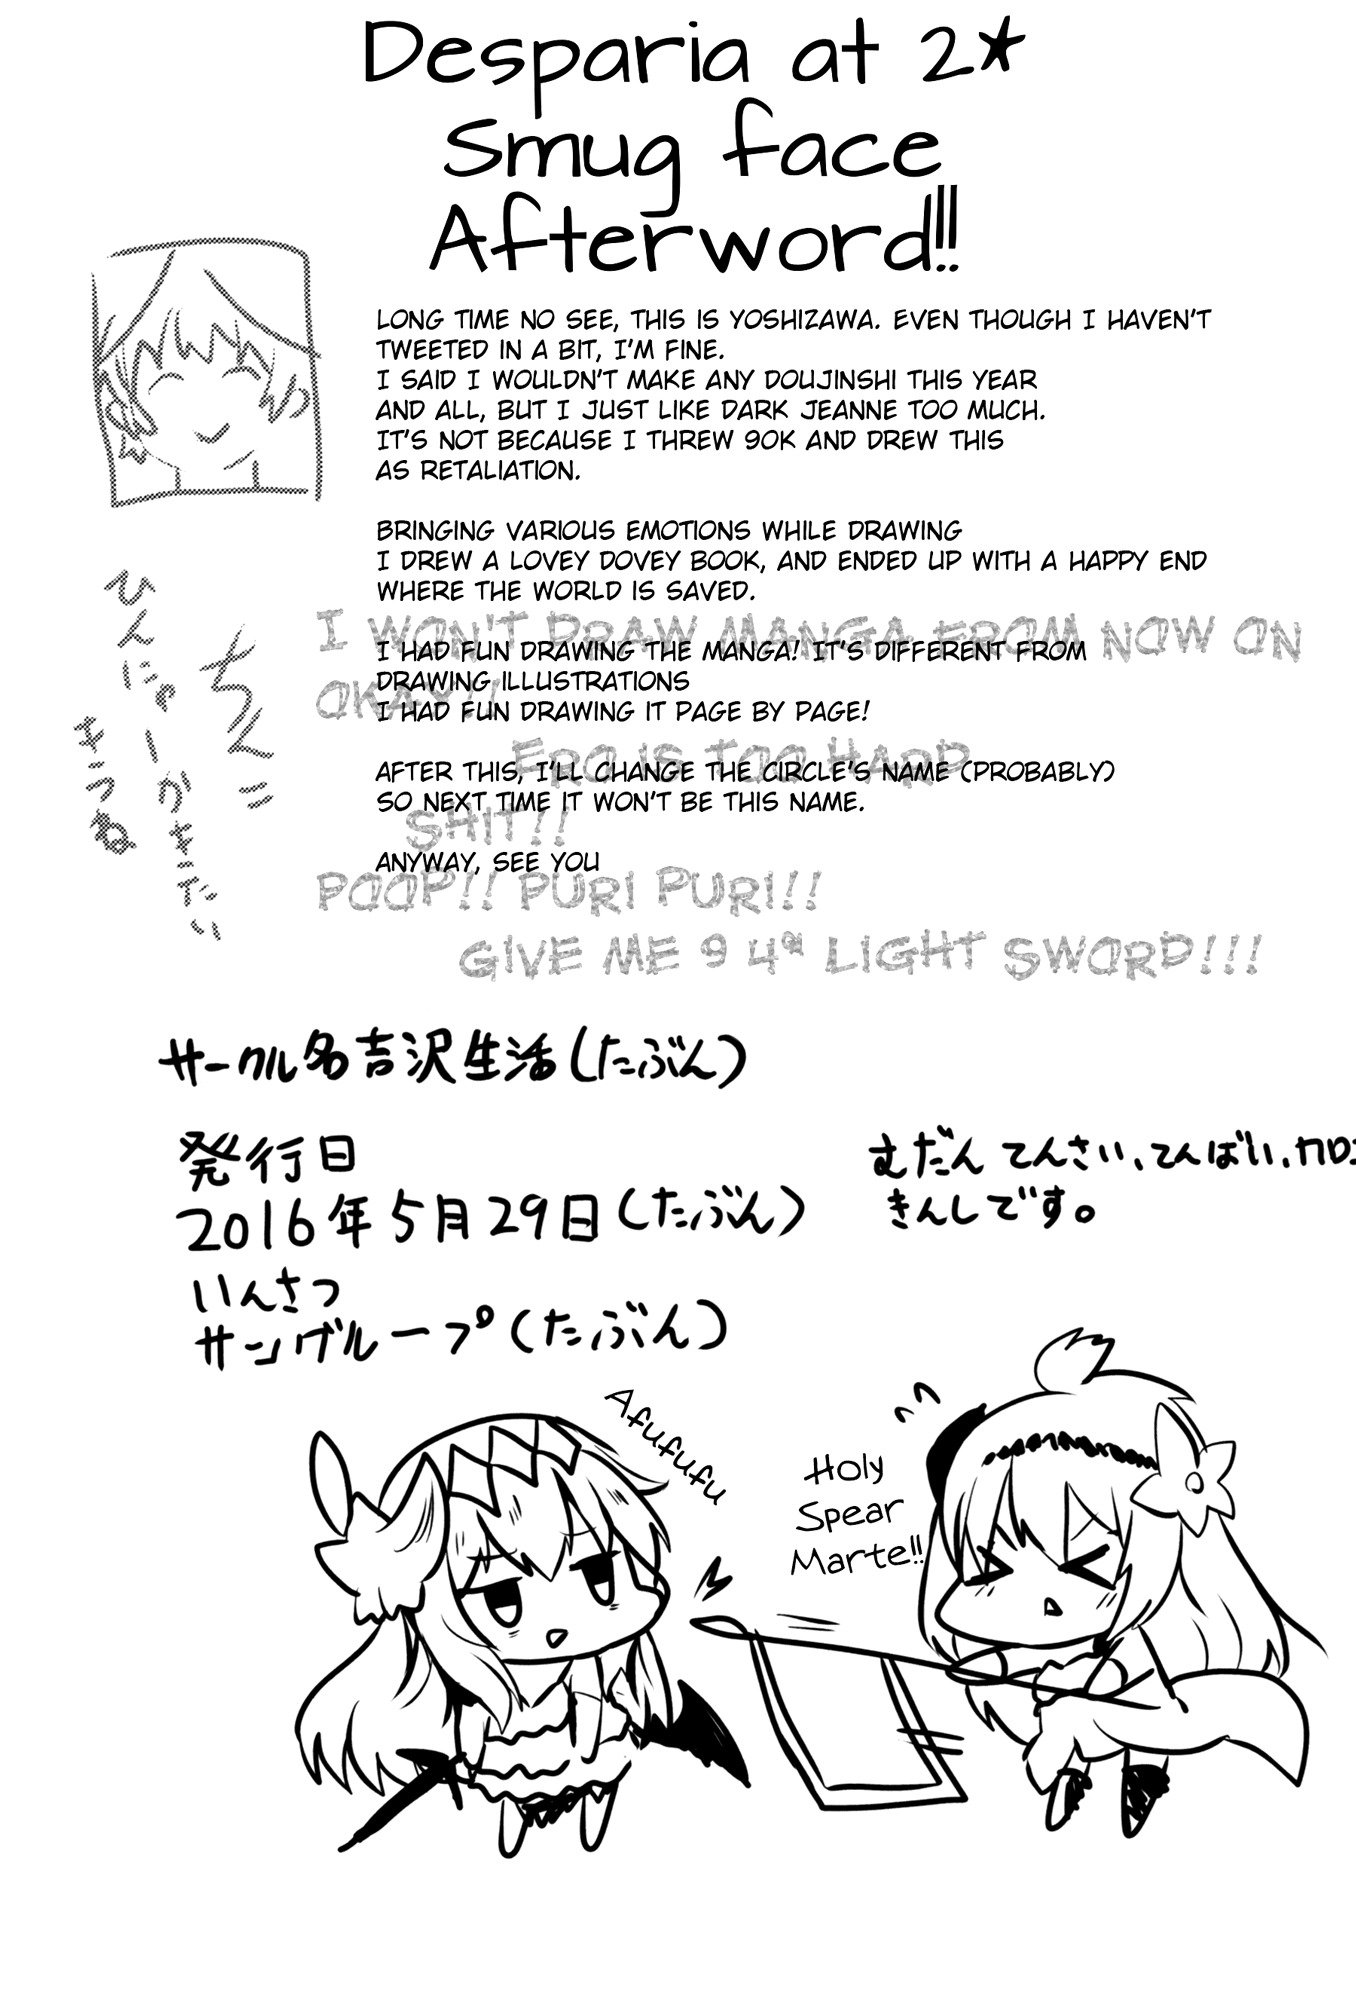 Desparia at 2*
Smug face
Afterword!!!
LONG TIME NO SEE, THIS IS YOSHIZAWA. EVEN THOUGH I HAVEN'T
TWEETED IN A BIT, I'M FINE.
I SAID I WOULDN'T MAKE ANY DOUJINSHI THIS YEAR
AND ALL, BUT I JUST LIKE DARK JEANNE TOO MUCH.
IT'S NOT BECAUSE I THREW 90K AND DREW THIS
AS RETALIATION.
BRINGING VARIOUS EMOTIONS WHILE DRAWING
I DREW A LOVEY DOVEY BOOK, AND ENDED UP WITH A HAPPY END
WHERE THE WORLD IS SAVED.
I WON'T DRAW MANGA FROM NOW ON
OKAY!!
I HAD FUN DRAWING THE MANGA! IT'S DIFFERENT FROM
DRAWING ILLUSTRATIONS
I HAD FUN DRAWING IT PAGE BY PAGE!
ERO IS TOO HARD
AFTER THIS, I'LL CHANGE THE CIRCLE'S NAME (PROBABLY)
SO NEXT TIME IT WON'T BE THIS NAME.
SHIT!!
ANYWAY, SEE YOU
POOP!! PURI PURI!!
GIVE ME 9 4* LIGHT SWORD!!!
ちんこ
ひんにゅーかきたい
きつね
サークル名吉沢生活(たぶん)
発行日
2016年5月29日(たぶん)
いんさつ
サングループ(たぶん)
むだん てんさい、てんばい、
きんしです。
Afufufu
Holy
Spear
Marte!!